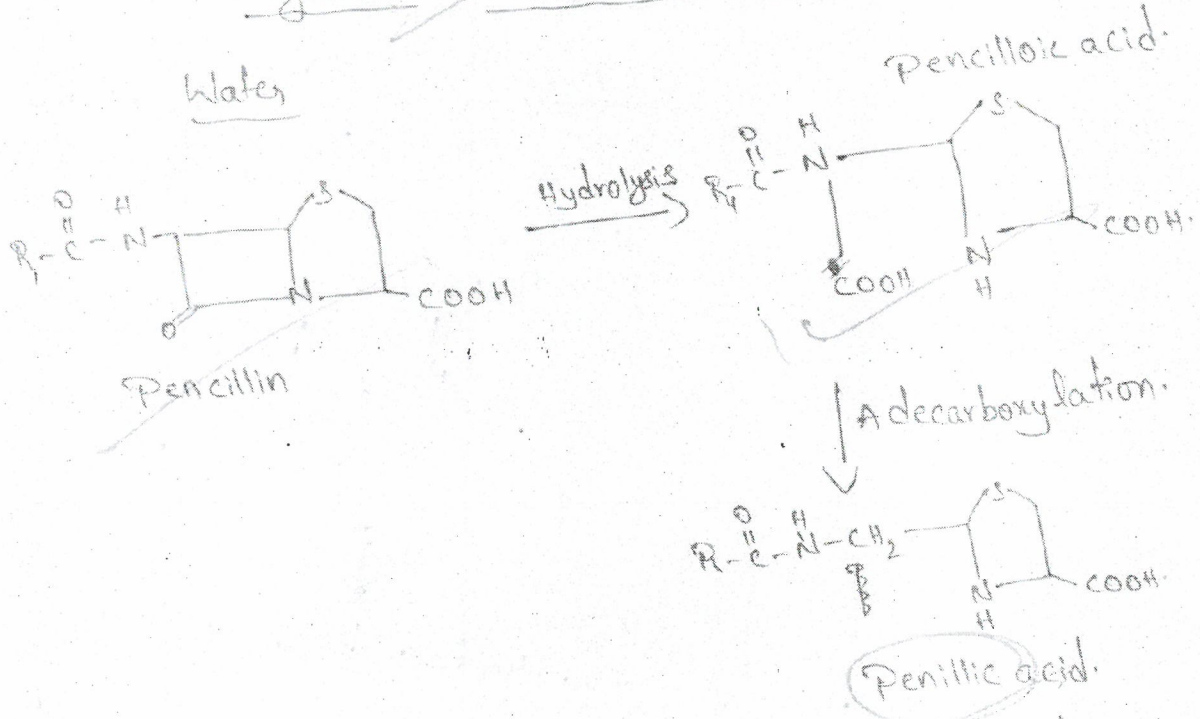 Water
Pencilloic acid.
R₁-C-N
O
H
S
N
O
COOH
Pencillin
Hydrolysis
R₁-C-N
O
H
S
COOH
N
H
COOH.
A decarboxylation.
R-C-N-CH₂
O
H
S
N
H
COOH.
Penillic acid.